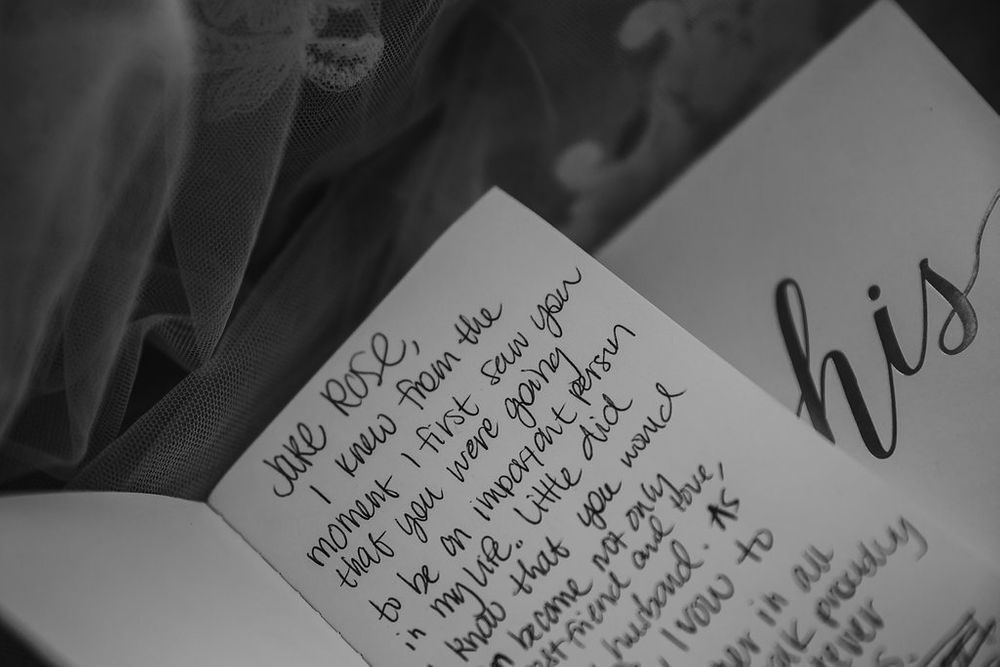 Jake Rose,
I knew from the
moment I first saw you
that you were going
to be an important person
in my life.. Little did
I know that you would
become not only
friend and love,
husband. As
I vow to
in all
proudly
his